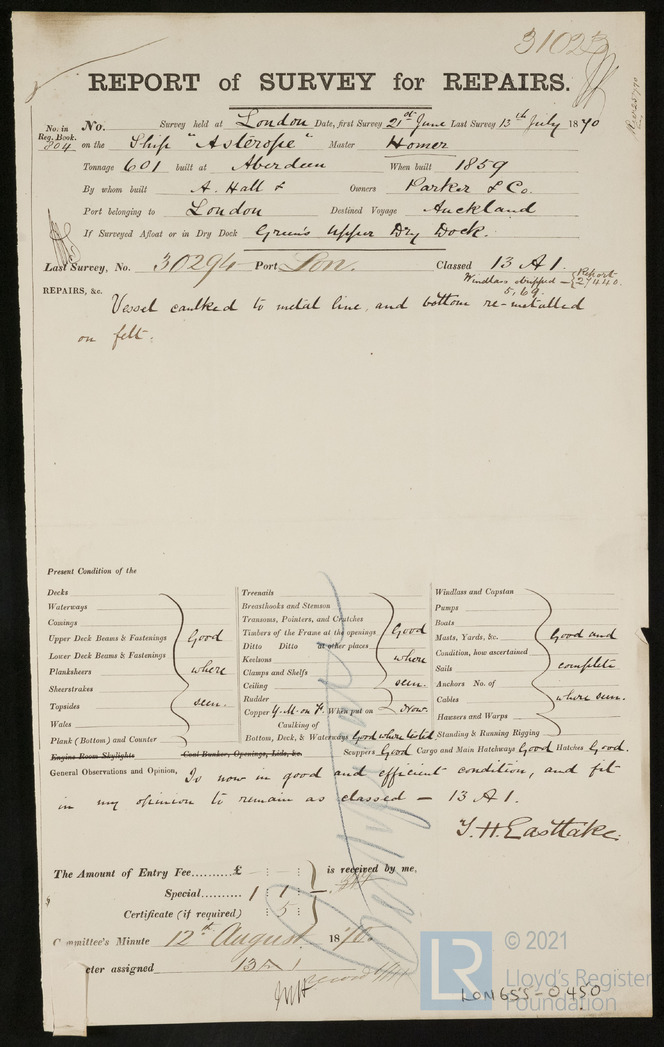 31023
REPORT of SURVEY for REPAIRS.
No. in Reg. Book. 204
No. Survey held at London Date, first Survey 21st June Last Survey 13th July 1870
on the Ship "Asterope" Master Homer
Tonnage 601 built at Aberdeen When built 1859
By whom built A. Hall & Owners Parker & Co.
Port belonging to London Destined Voyage Auckland
If Surveyed Afloat or in Dry Dock Green's Upper Dry Dock.
Last Survey, No. 30294 Port Lon. Classed 13 A 1.
Windlass shipped 5,69. Report 27440.
REPAIRS, &c.
Vessel caulked to metal line, and bottom re-metalled
on felt.
Present Condition of the
Decks
Waterways
Comings
Upper Deck Beams & Fastenings
Lower Deck Beams & Fastenings
Planksheers
Sheerstrakes
Topsides
Wales
Plank (Bottom) and Counter
Good where seen.
Engine Room Skylights Coal Bunker, Openings, Lids, &c.
Treenails
Breasthooks and Stemson
Transoms, Pointers, and Crutches
Timbers of the Frame at the openings
Ditto Ditto at other places
Keelsons
Clamps and Shelfs
Ceiling
Rudder
Good where seen.
Copper Y.M. on F. When put on Now.
Caulking of
Bottom, Deck, & Waterways Good where tested
Windlass and Capstan
Pumps
Boats
Masts, Yards, &c.
Condition, how ascertained
Sails
Anchors No. of
Cables
Hawsers and Warps
Standing & Running Rigging
Good and complete where seen.
Scuppers Good Cargo and Main Hatchways Good Hatches Good.
General Observations and Opinion, Is now in good and efficient condition, and fit
in my opinion to remain as classed — 13 A 1.
T. H. Eastlake.
The Amount of Entry Fee..........£ : : is received by me,
Special.......... 1 : 1 :
Certificate (if required) : 5 :
Committee's Minute 12th August 1870.
cter assigned 13 A 1
LR
© 2021
Lloyd's Register
Foundation
LON655-0450